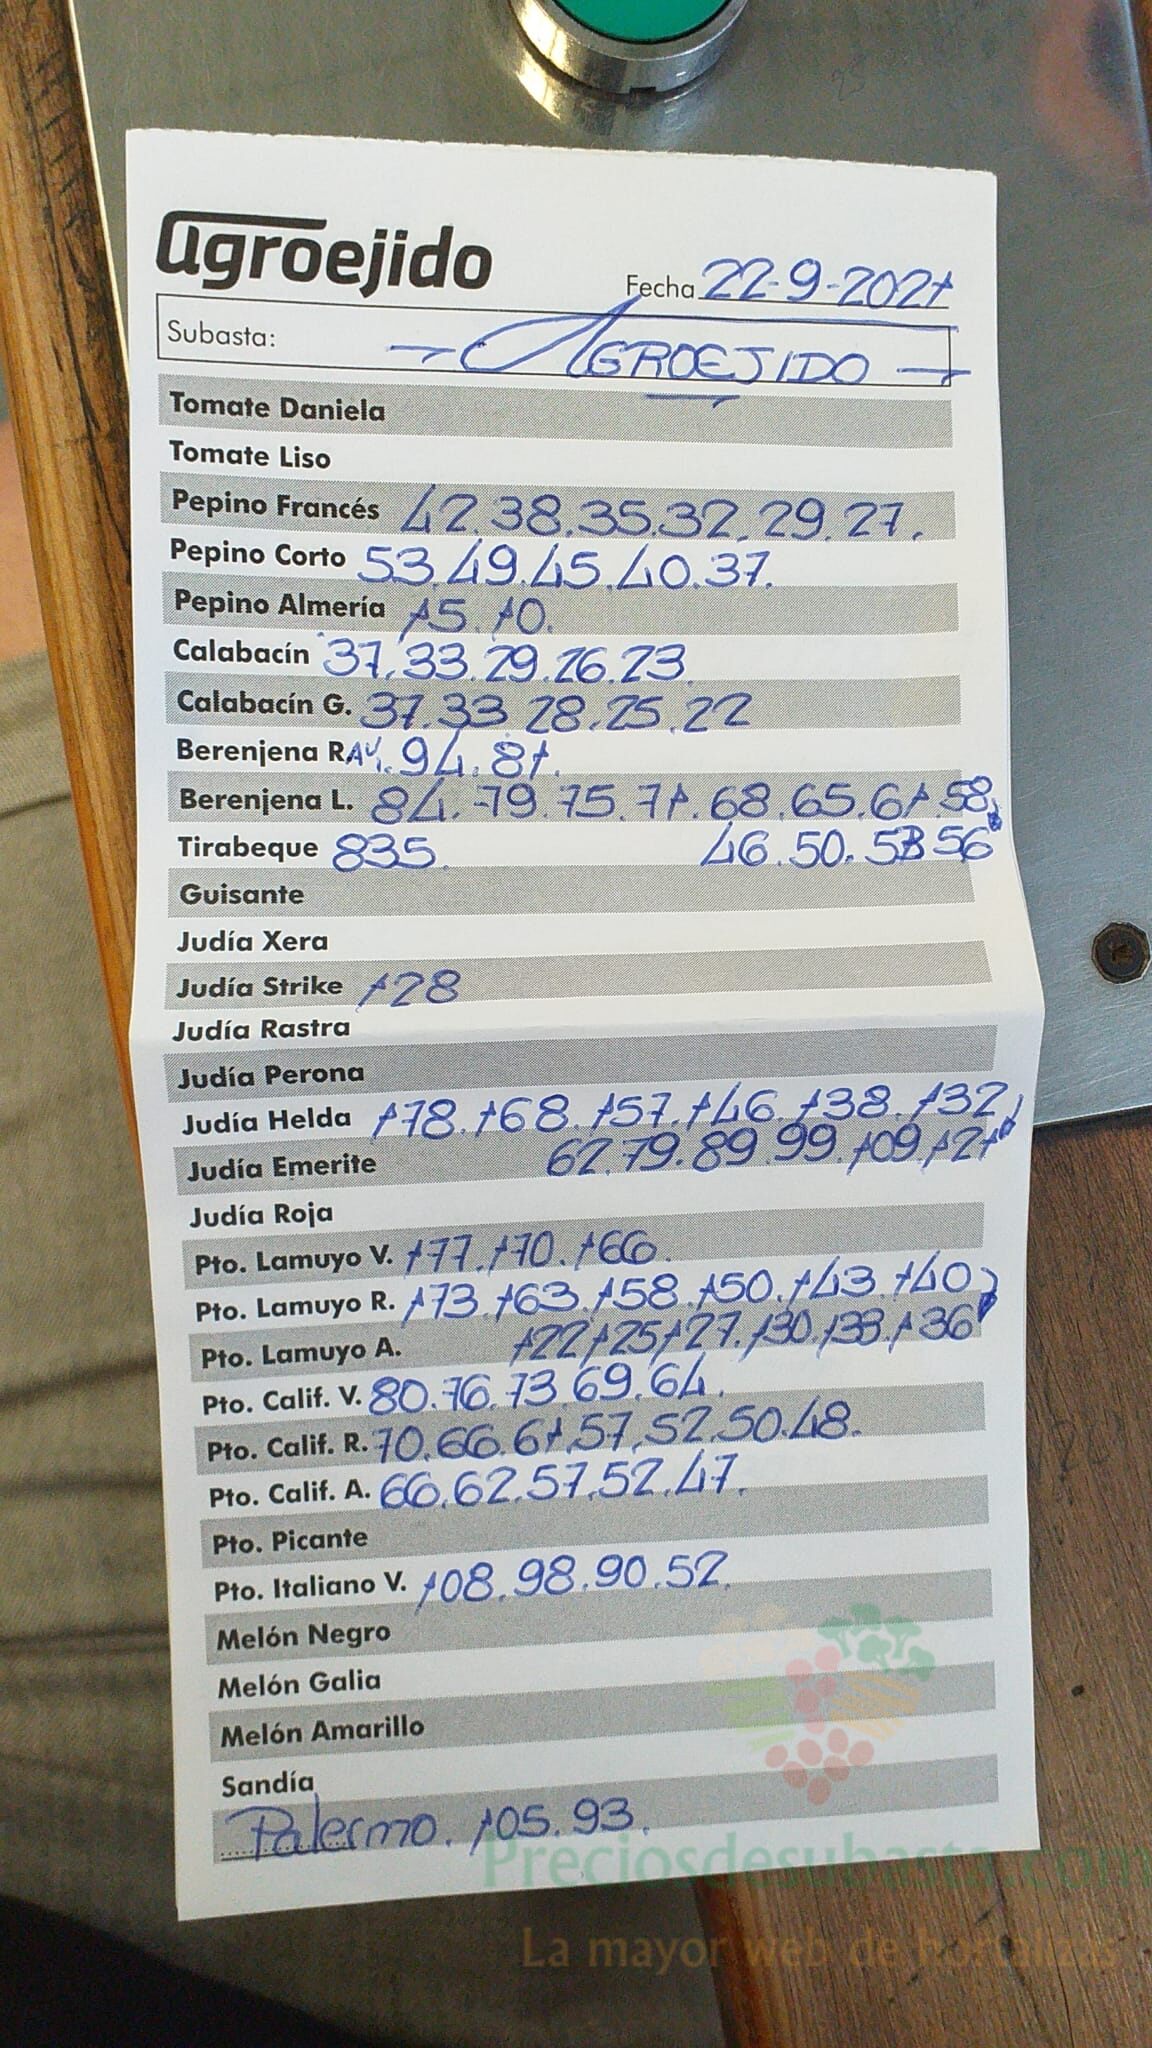 agroejido
Fecha 22-9-2021
Subasta: AGROEJIDO
Tomate Daniela
Tomate Liso
Pepino Francés 42.38.35.32.29.27.
Pepino Corto 53.49.45.40.37.
Pepino Almería 15.10.
Calabacín 37.33.29.26.23.
Calabacín G. 37.33 28.25.22
Berenjena RAY. 94.81.
Berenjena L. 84.79.75.71.68.65.61.58,
Tirabeque 835. 46.50.53 56
Guisante
Judía Xera
Judía Strike 128
Judía Rastra
Judía Perona
Judía Helda 178.168.157.146.138.132,
Judía Emerite 62.79.89.99.109.121
Judía Roja
Pto. Lamuyo V. 177.170.166.
Pto. Lamuyo R. 173.163.158.150.143.140,
Pto. Lamuyo A. 122.125.127.130.133.136
Pto. Calif. V. 80.76.73.69.64.
Pto. Calif. R. 70.66.61.57.52.50.48.
Pto. Calif. A. 66.62.57.52.47.
Pto. Picante
Pto. Italiano V. 108.98.90.52.
Melón Negro
Melón Galia
Melón Amarillo
Sandía
Palermo. 105.93.
Preciosdesubasta.com
La mayor web de hortalizas